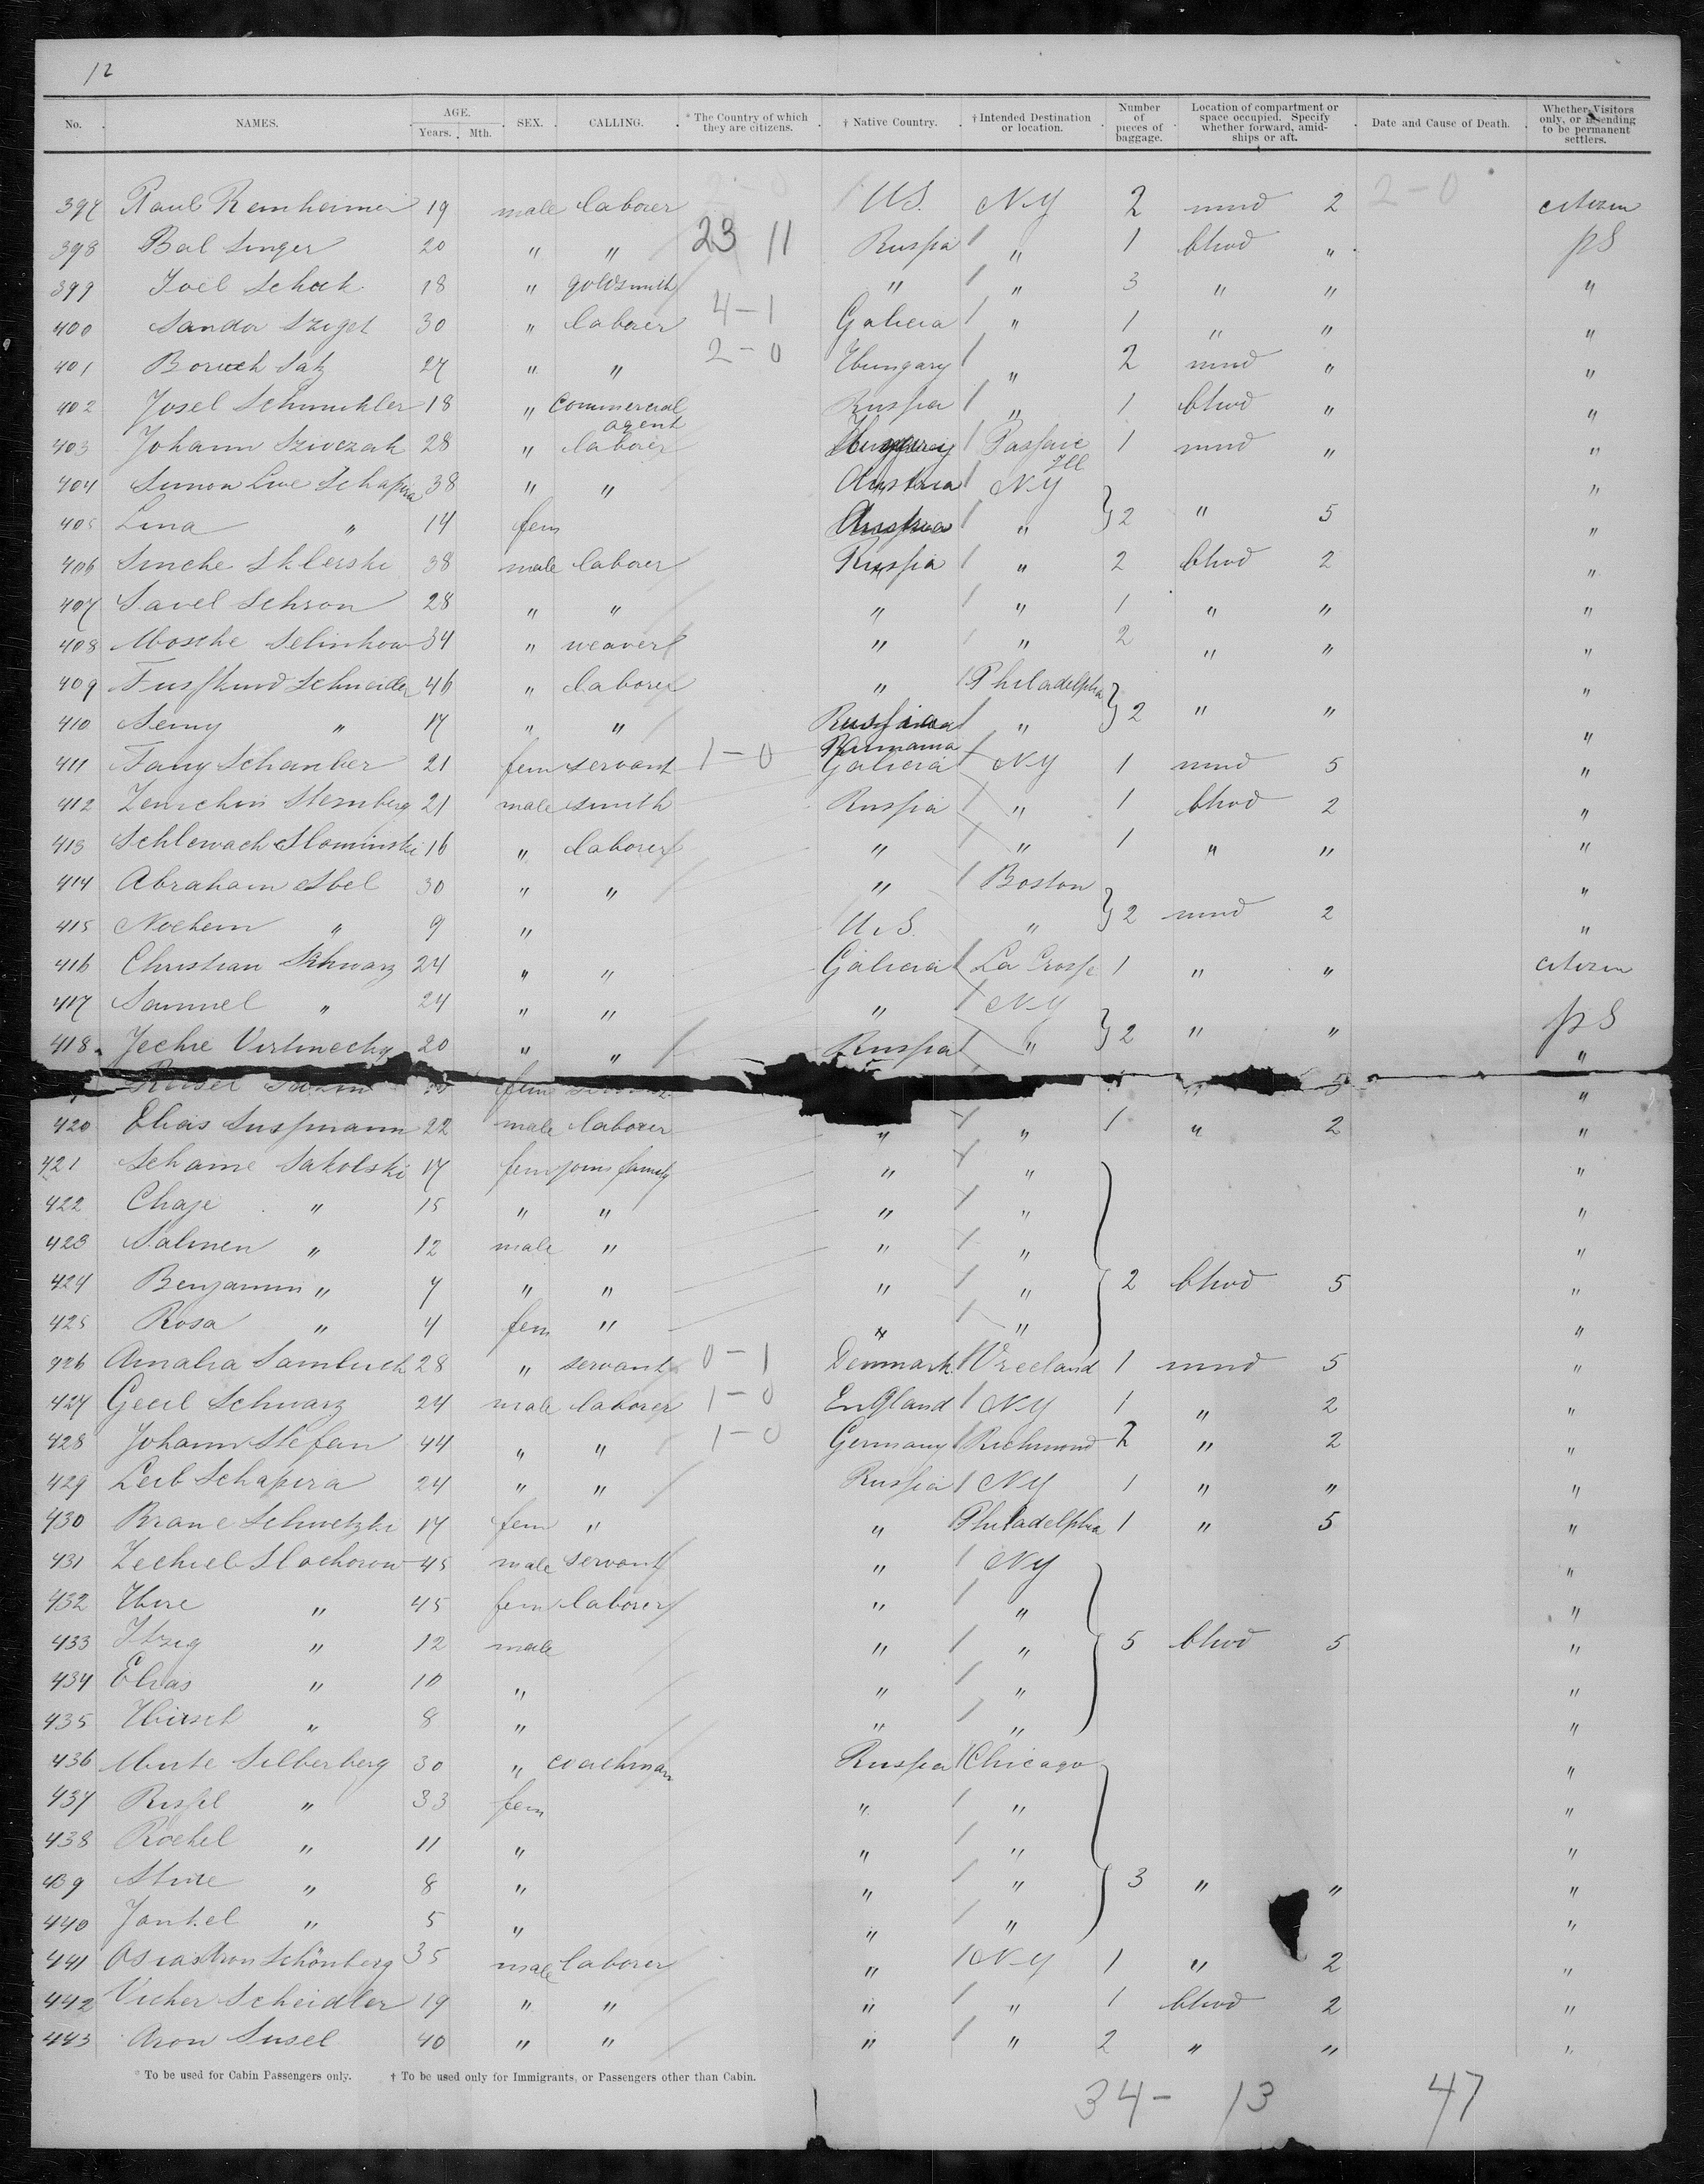 12
No. NAMES. AGE. Years. Mth. SEX. CALLING. * The Country of which they are citizens. † Native Country. † Intended Destination or location. Number of pieces of baggage. Location of compartment or space occupied. Specify whether forward, amidships or aft. Date and Cause of Death. Whether Visitors only, or intending to be permanent settlers.
397 Paul Remheimer 19 male laborer 2-0 U.S. N.Y 2 mmd 2 2-0 citizen
398 Bal Singer 20 " " 23 11 Russia / " 1 bhwd " pS
399 Joel Schock 18 " goldsmith " / " 3 " " "
400 Sandor Sziget 30 " laborer 4-1 Galicia / " 1 " " "
401 Boruch Satz 27 " " 2-0 Hungary / " 2 mmd " "
402 Josel Schmukler 18 " commercial agent Russia / " 1 bhwd " "
403 Johann Szivczak 28 " laborer Hungary / Passaic Ill 1 mmd " "
404 Simon Schapira 38 " " Austria / N.Y "
405 Lina " 14 fem Austria / " } 2 " 5 "
406 Simche Sklerski 38 male laborer Russia / " 2 bhwd 2 "
407 Savel Schron 28 " " " / " 1 " " "
408 Mosche Selinkow 34 " weaver " / " 2 " " "
409 Schneider 46 " laborer " / Philadelphia "
410 Semy " 17 " " Russia / " } 2 " " "
411 Fany Schamber 21 fem servant 1-0 Rumania Galicia / N.Y 1 mmd 5 "
412 Sternberg 21 male smith Russia / " 1 bhwd 2 "
413 Schlewach Slominski 16 " laborer " / " 1 " " "
414 Abraham Abel 30 " " " / Boston "
415 Nochem " 9 " U.S. " } 2 mmd 2 "
416 Christian Schwarz 24 " " Galicia / La Crosse 1 " " citizen
417 Samuel " 24 " " " / N.Y pS
418 Jechie 20 " " Russia / " } 2 " " "
fem 5 "
420 Elias Sussmann 22 male laborer " / " 1 " 2 "
421 Schaine Sakolski 17 fem joins family " / " "
422 Chaje " 15 " " " / " "
423 Salmen " 12 male " " / " "
424 Benjamin " 7 " " " / " 2 bhwd 5 "
425 Rosa " 4 fem " " / " "
426 Amalia Samluck 28 " servant 0-1 Denmark / Vreeland 1 mmd 5 "
427 Schwarz 24 male laborer 1-0 England / N.Y 1 " 2 "
428 Johann Stefan 44 " " 1-0 Germany / Richmond 2 " 2 "
429 Leib Schapira 24 " " Russia / N.Y 1 " " "
430 Brane Schwetzki 17 fem " " Philadelphia 1 " 5 "
431 Zechiel Slochorow 45 male servant " / N.Y "
432 Hire " 45 fem laborer " / " "
433 Itzig " 12 male " / " 5 bhwd 5 "
434 Elias " 10 " " / " "
435 Hirsch " 8 " " / " "
436 Silberberg 30 " coachman Russia / Chicago "
437 Rissel " 33 fem " / " "
438 Rochel " 11 " " / " "
439 " 8 " " / " 3 " " "
440 Jankel " 5 " " / " "
441 Schönberg 35 male laborer " / N.Y 1 " 2 "
442 Vicher Scheidler 19 " " " / " 1 bhwd 2 "
443 Aron Susel 40 " " " / " 2 " " "
* To be used for Cabin Passengers only. † To be used only for Immigrants, or Passengers other than Cabin.
34- 13 47